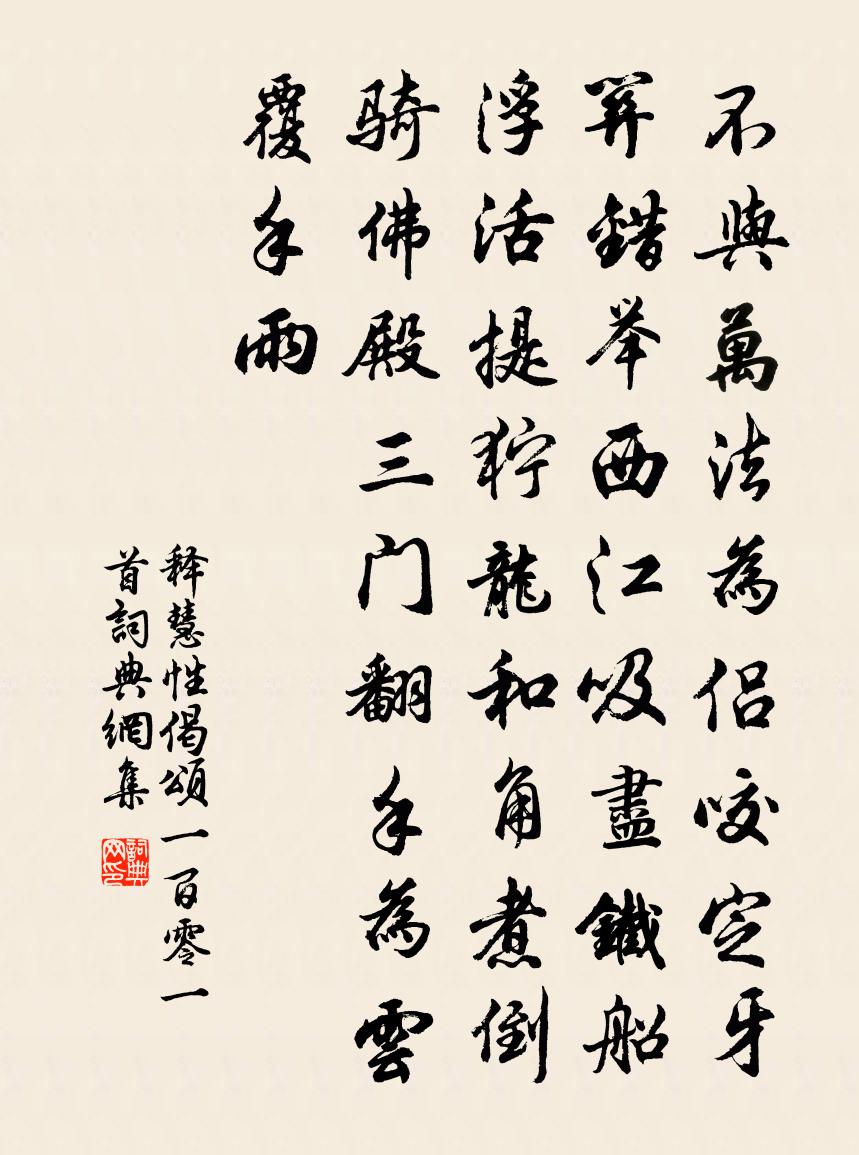 不與萬法為侶咬定牙
筭錯举西江吸盡鐵船
浮活提狞龍和角煮倒
騎佛殿三门翻手為雲
覆手雨
释慧性偈頌一百零一
首詞典網集
詞典网印